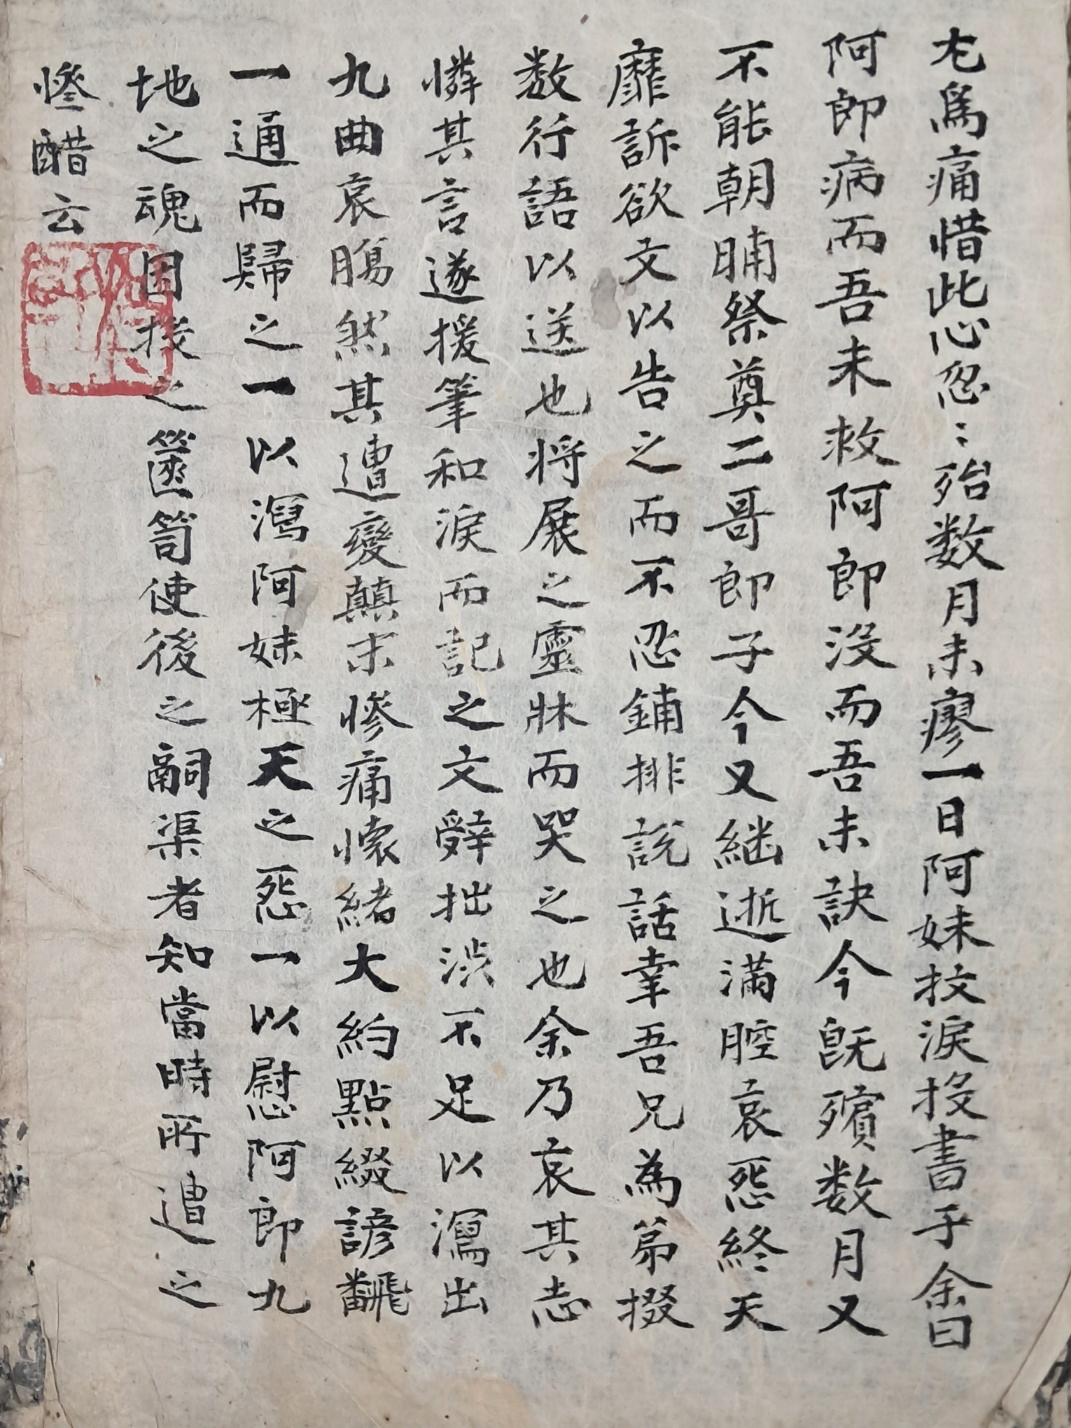 尤爲痛惜此心忽〻殆数月未瘳一日阿妹抆淚投書于余曰
阿郎病而吾未救阿郎沒而吾未訣今旣殯数月又
不能朝晡祭奠二哥郎子今又継逝滿腔哀怨終天
靡訴欲文以告之而不忍鋪排說話幸吾兄為弟掇
数行語以送也将展之靈牀而哭之也余乃哀其志
憐其言遂援筆和淚而記之文辭拙澁不足以瀉出
九曲哀腸然其遭變顛末慘痛懷緒大約點綴諺飜
一通而歸之一以瀉阿妹極天之怨一以慰阿郎九
地之魂因投之篋笥使後之嗣渠者知當時所遭之
慘醋云